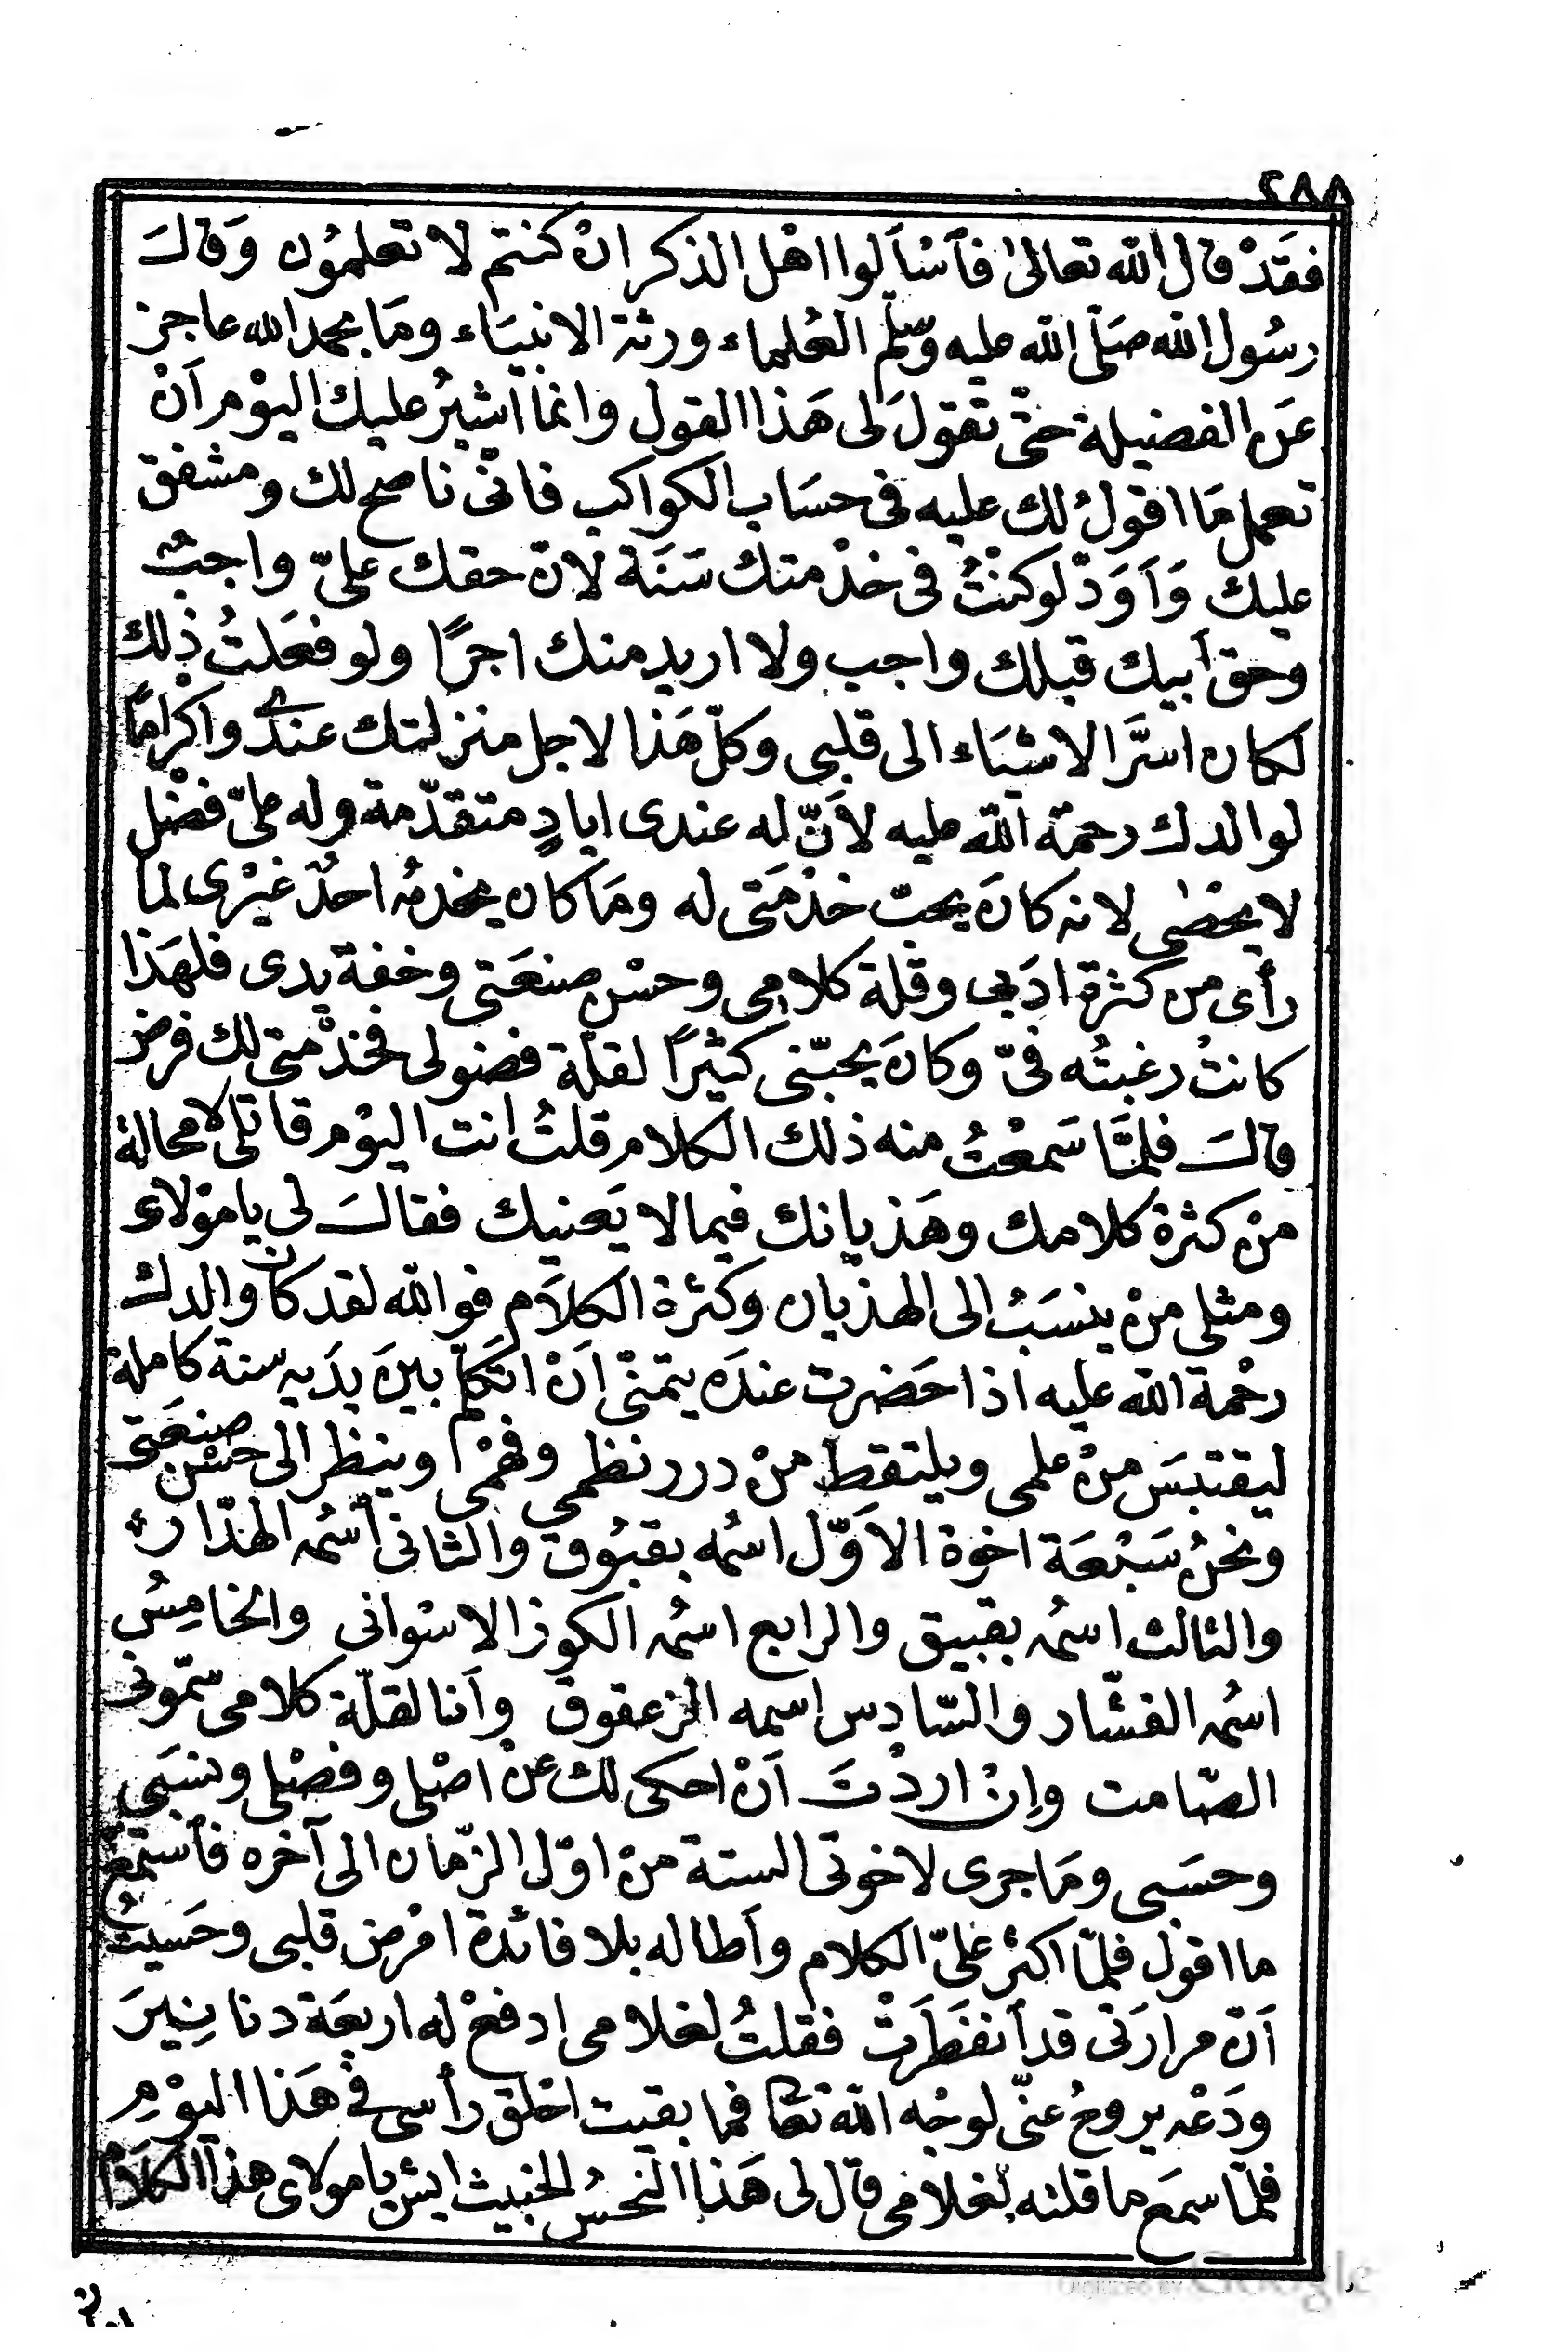 ٢٨٨
فقَدْ قال الله تعالىٰ فآسْأَلوا اهْل الذكر انْ كنتم لا تعلمُون وَقالَ
رسُول الله صَلّى الله عليه وسّلم العُلماء ورثة الانبيَاء ومَا بحمد الله عاجز
عَن الفضيلة حتّى تقولَ لى هَذا القول وانما اشيرُ عليك اليوْم اَنْ
تعمل مَا اقولُ لك عليه فى حسَاب الكواكب فانّى ناصح لك ومشفق
عليك وَاَوَدّ لو كنْتُ فى خذْمتك سَنَة لانّ حقك علىّ واجبٌ
وحق أبيك قبلك واجب ولا اريد منك اجرًا ولو فعَلتُ ذٰلك
لكان اسَرَّ الاشيَاء الى قلبى وكلّ هَذا لاجل منزلتك عندى واكرامًا
لوالدك رحمة الله عليه لأنّ له عندى ايادٍ متقدّمة وله علىّ فضْل
لا يحْصٰى لانه كانَ يحبّ خذْمَتى له ومَا كان يخدمُه احدٌ غيْرى لما
رأى من كثرة ادَبى وقلة كلامى وحسْن صنعَتى وخفة يدى فلهَذا
كانتْ رغبتُه فىّ وكانَ يحبّنى كثيرًا لقلّة فضولى فخذْمتى لك فرض
قالَ فلمَّا سَمعْتُ منه ذلك الكلام قلتُ انت اليوْم قاتلى لا محالة
منْ كثرة كلامك وهَذيانك فيما لا يَعنيك فقالَ لى يا موْلاى
ومثلى منْ ينسَبُ الى الهذيان وكثرة الكلاَم فوالله لقد كان والدك
رحْمة الله عليه اذا حَضرت عندَه يتمنّى اَنْ اتكلّم بينَ يدَيه سنة كاملة
ليقتبسَ منْ علمى ويلتقط منْ درر نظمى وفهْمى وينظر الى حسْن صنعَتى
ونحنُ سَبْعَة اخوة الاَوّل اسمُه بقبُوق والثانى أسْمُه الهدّار
والثالث اسمُه بقبيق والرابع اسمُه الكوز الاسْوانى والخامِسُ
اسمُه الفشّار والسّادِس اسمه الزعقوق واَنا لقلّة كلامى سمّونى
الصّامت وانْ اردْتَ اَنْ احكى لك عنْ اصْلى وفضْلى ونسَبى
وحسَبى ومَا جرى لاخوتى الستة منْ اوّل الزّمان الى آخره فآستمعْ
ما اقول فلمّا اكثر علىّ الكلام واَطاله بلا فائدة امْرض قلبى وحَسيتُ
اَنّ مرارَتى قد اَنفَطَرَتْ فقلتُ لغلامى ادفعْ له اربعَة دنانِيرَ
ودَعْه يروحُ عنّى لوجْه الله تعا فما بقيت احْلق رأسى فى هَذا اليوْم
فلمّا سمَع ما قلته لغلامى قال لى هَذا النحسُ الخبيث ايش يا مولاى هذا الكلام